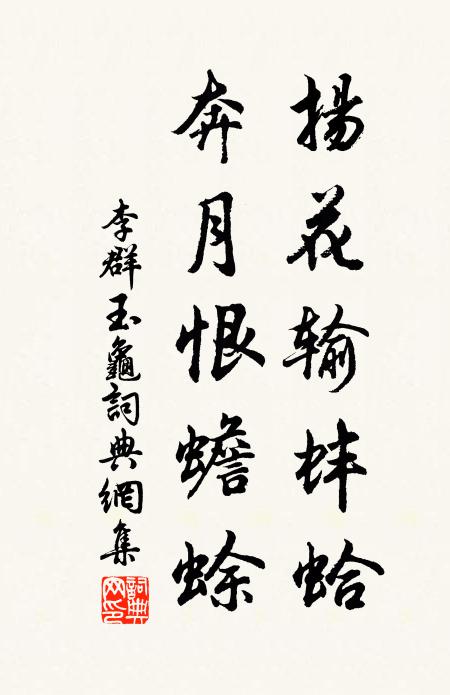 揚花输蚌蛤
奔月恨蟾蜍
李群玉龜詞典網集
詞典网印